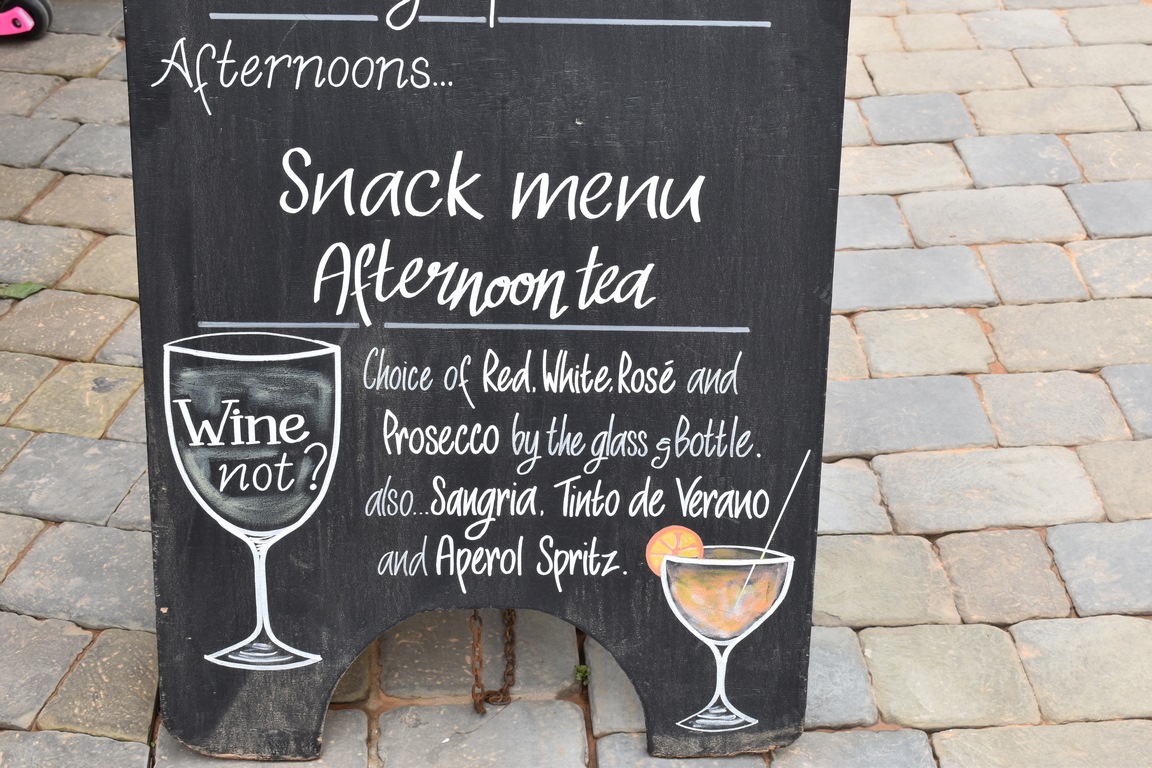 Afternoons...
Snack menu
Afternoon tea
Wine
not?
Choice of Red, White, Rosé and
Prosecco by the glass & Bottle.
also...Sangria, Tinto de Verano
and Aperol Spritz.